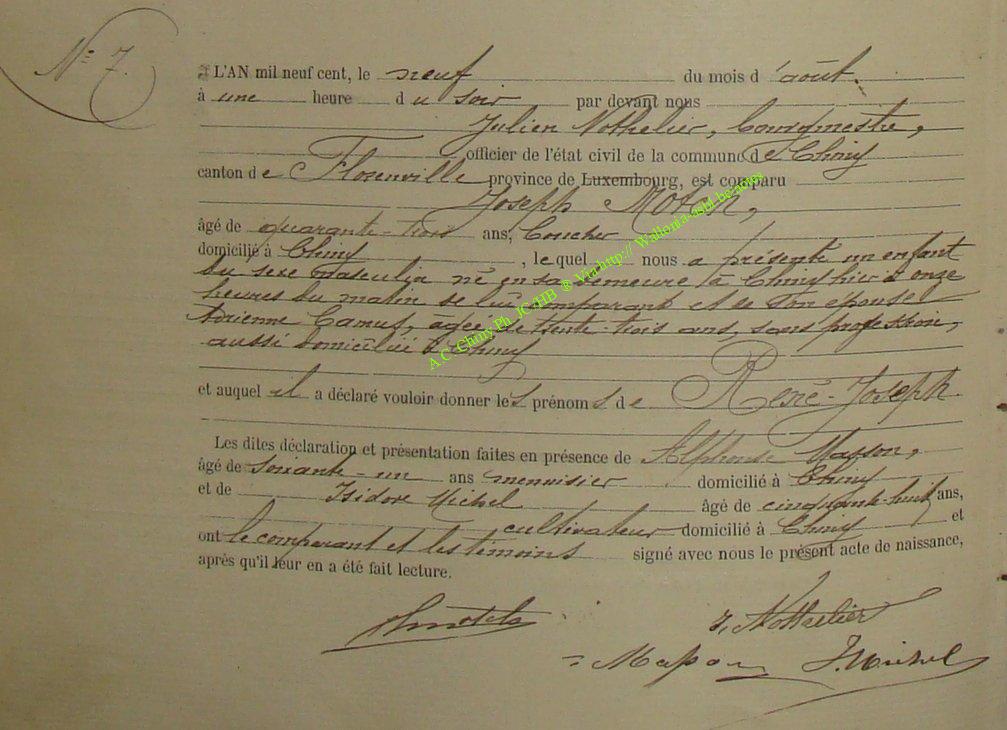 N° 7.
L'AN mil neuf cent, le neuf du mois d'août.
à une heure du soir par devant nous
Julien Nothelier, bourgmestre,
officier de l'état civil de la commune de Chiny
canton de Florenville province de Luxembourg, est comparu
Joseph
âgé de quarante-trois ans, 
domicilié à Chiny, lequel nous a présenté un enfant
du sexe masculin né en sa demeure à Chiny hier à onze
heures du matin de lui comparant et de son épouse
Adrienne Camus, âgée de trente-trois ans, sans profession,
aussi domiciliée à Chiny
et auquel il a déclaré vouloir donner les prénoms de René-Joseph.
Les dites déclaration et présentation faites en présence de Alphonse Masson,
âgé de soixante-un ans menuisier domicilié à Chiny
et de Isidore Michel âgé de cinquante-huit ans,
cultivateur domicilié à Chiny et
ont le comparant et les témoins signé avec nous le présent acte de naissance,
après qu'il leur en a été fait lecture.
J. Nothelier
Masson J. Michel
A.C. Chiny Ph. JC HB ® Via http:// Wallonia-asbl.be.